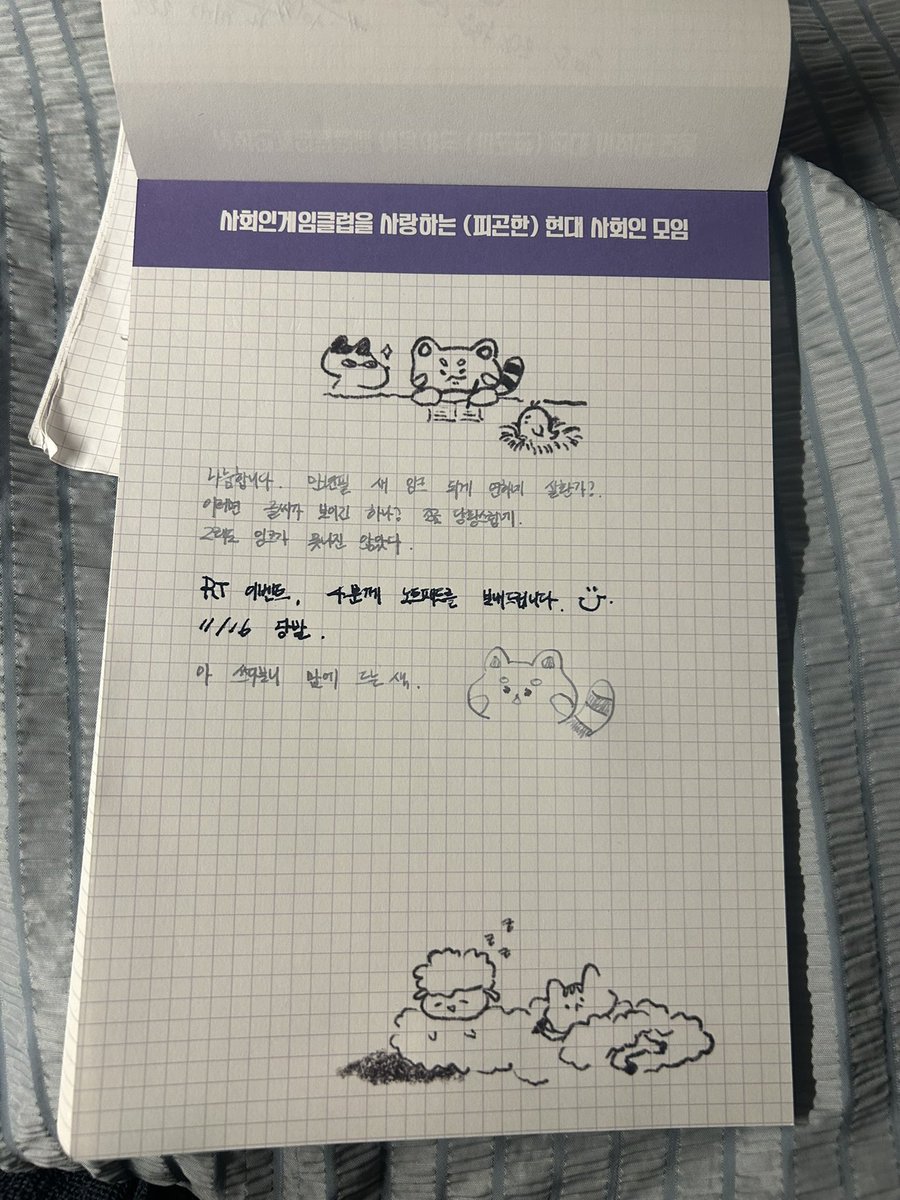 사회인게임클럽을 사랑하는 (피곤한) 현대 사회인 모임
나눔합니다. 만년필 새 잉크 되게 연하네 실환가?.
이러면 글씨가 보이긴 하나? 조금 당황스럽네.
그래도 잉크가 못나진 않았다.
RT 이벤트, 4분께 노트패드를 보내드립니다.
11/16 당발.
아 쓰다보니 맘에 드는 색.
z
z
z